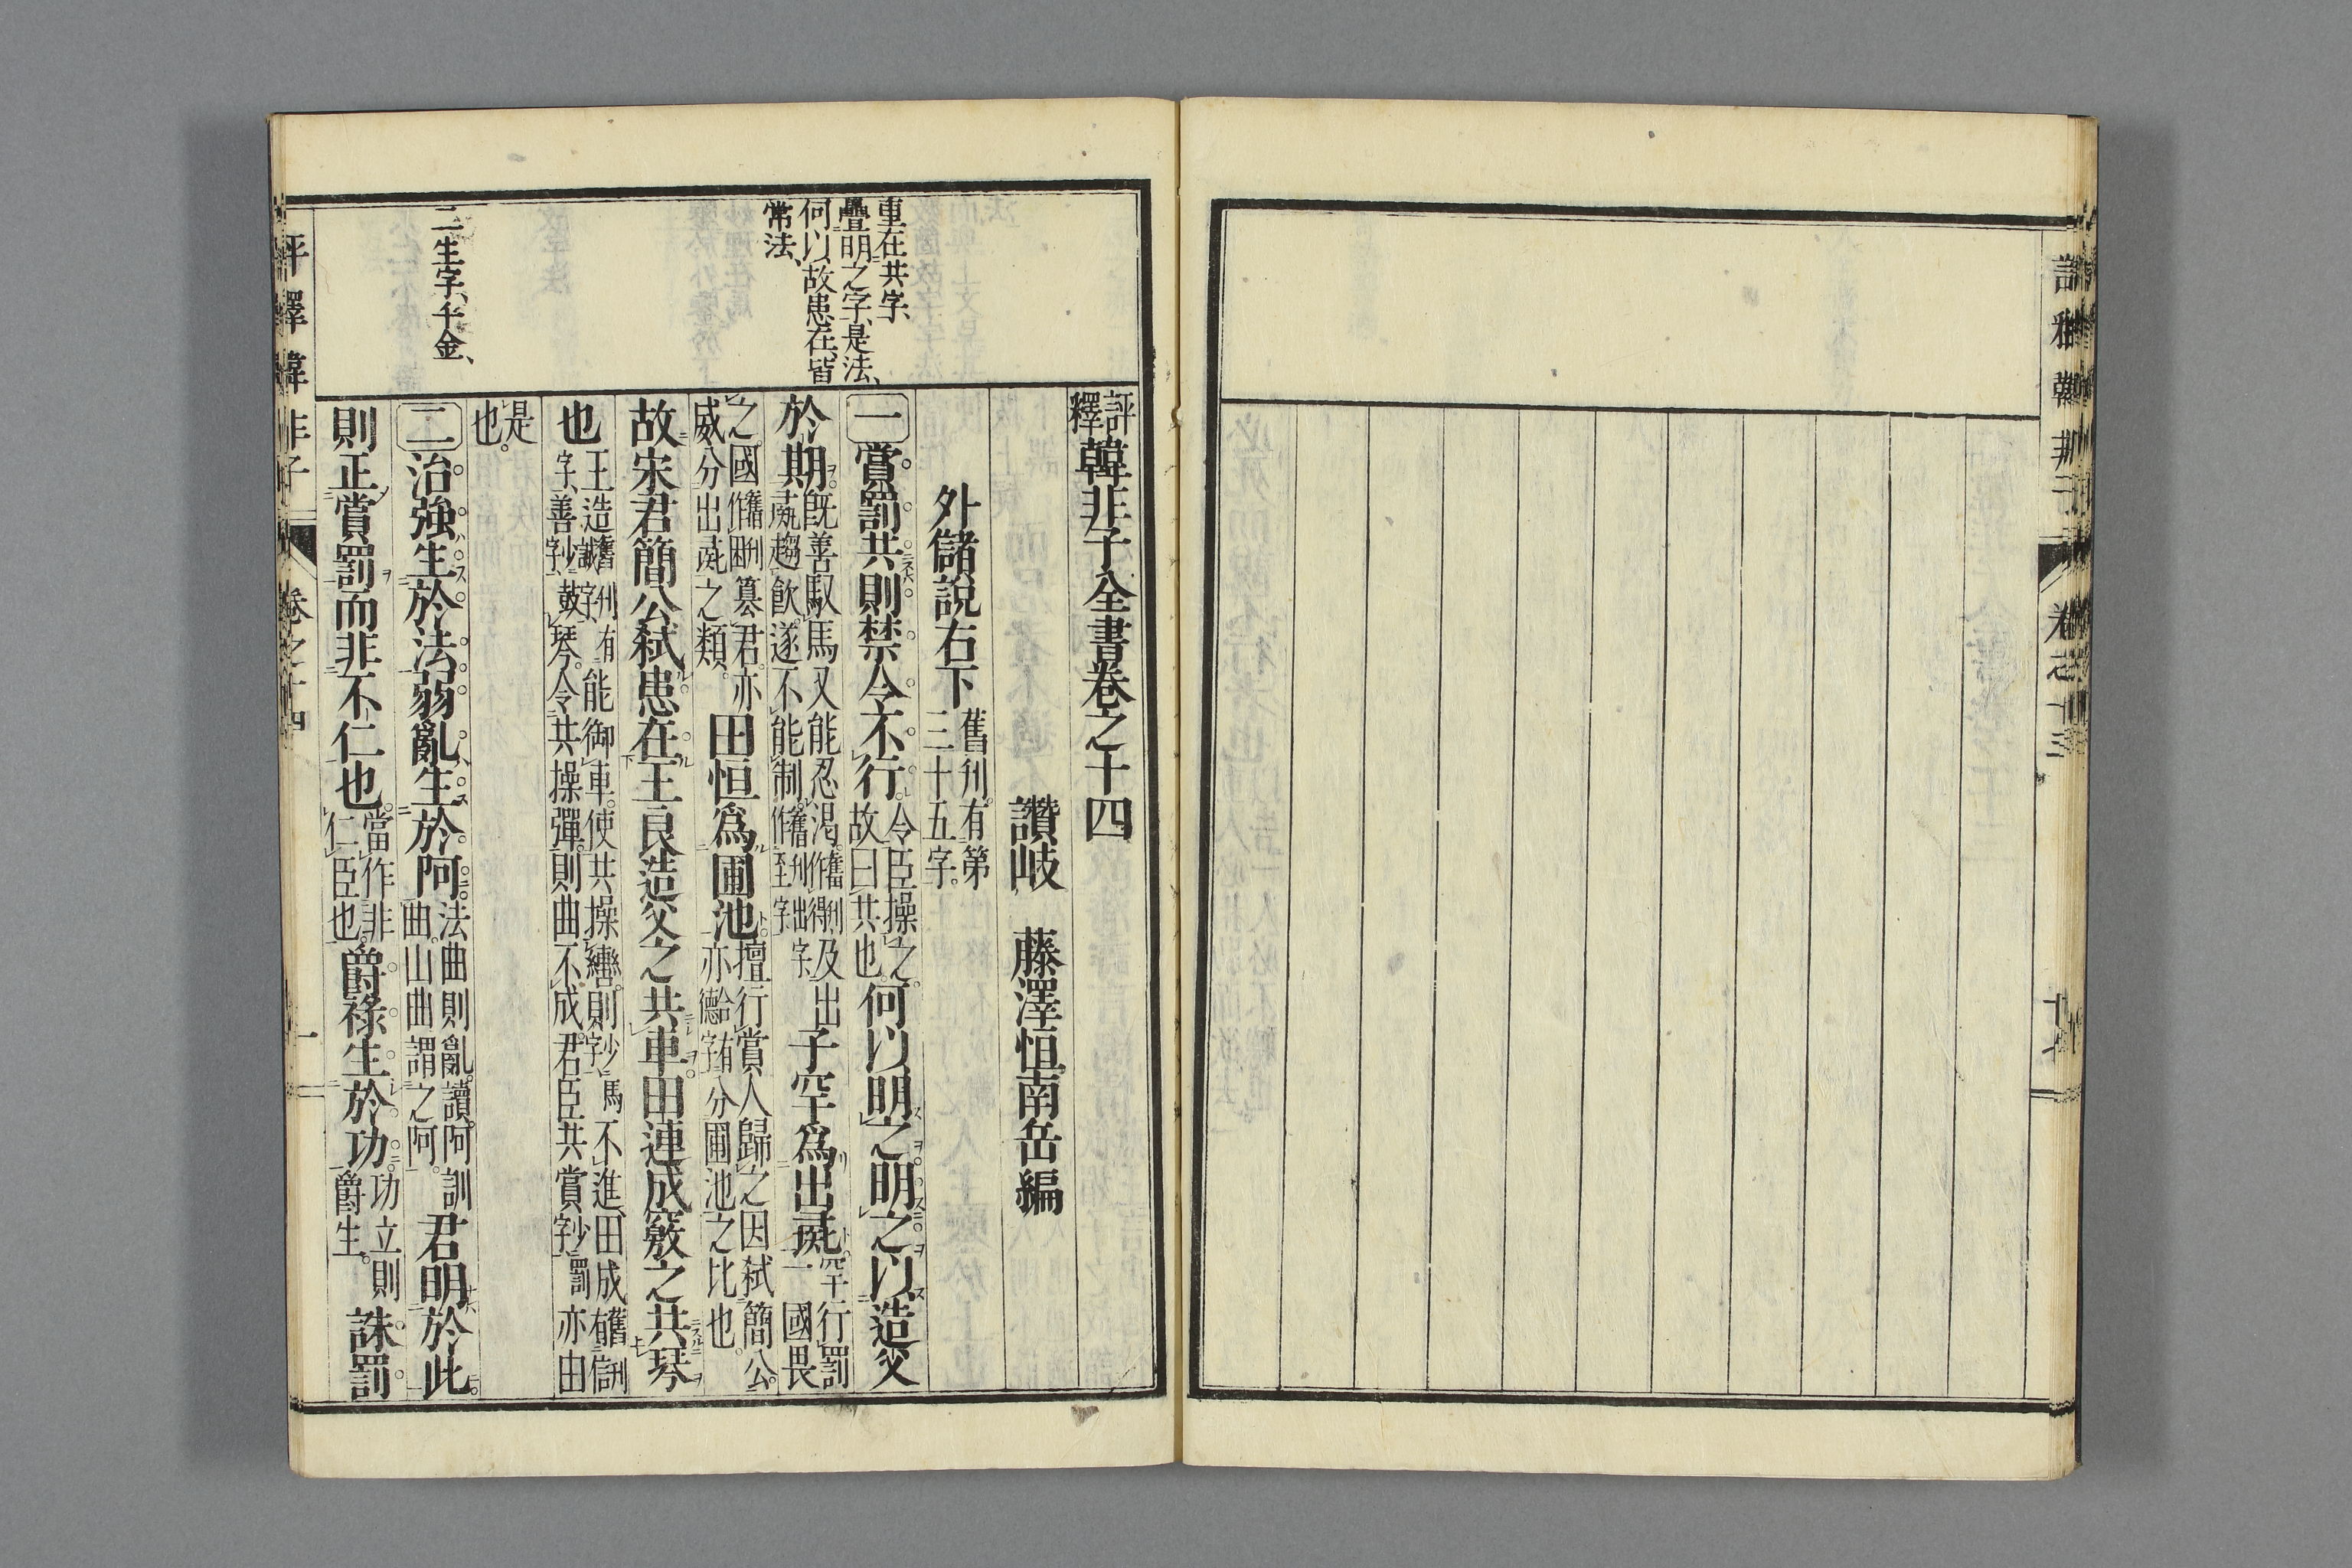 評釋韓非子全書卷之十四
讚岐 藤澤恒南岳編
外儲說右下 舊刋有第三十五字
重在共字、
疊明之字、是法、
何以、故患在、皆
常法、
一 賞罰共則禁令不行 令臣操之故曰共也 何以明之明之以造父
於期 既善馭馬又能忍渴舊刋作得及出彘趨飮遂不能制舊刋出字作至字 子罕爲出彘 罕行罰一國畏
之國舊刋作田簒君亦威分出彘之類 田恒爲圃池 擅行賞人歸之因弑簡公亦德分圃池之比也
故宋君簡公弑患在王良造父之共車田連成竅之共琴
也 王造舊刋有誠字能御車使共操轡則馬不進田成舊刋有信字善鼓琴令共操彈則曲不成君臣共賞罰亦由
是也
二生字、千金、
二 治強生於法弱亂生於阿 法曲則亂讀阿訓曲山曲謂之阿 君明於此
則正賞罰而非不仁也 當作非仁臣也 爵祿生於功 功立則爵生 誅罰
評釋韓非子 卷之十四 一